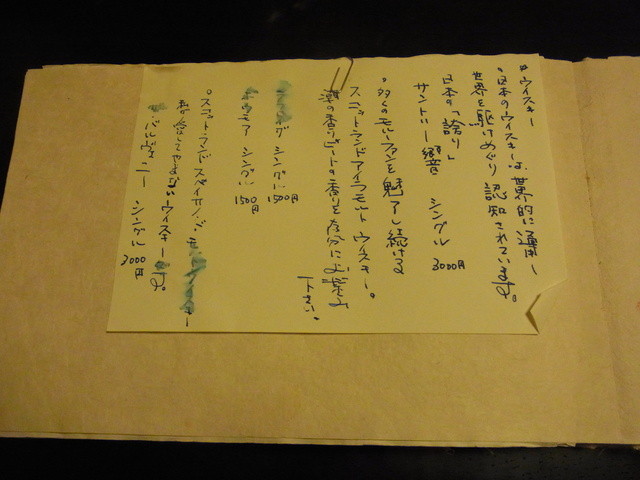 ウイスキー
日本のウイスキーは、世界的に通用し
世界を駆けめぐり認知されています。
日本の「誇り」
サントリー響 シングル 3000円
多くのモルトファンを魅了し続ける
スコットランドアイラモルトウイスキー。
潮の香りピートの香りを存分にお楽しみ
下さい。
シングル 1500円
ボウモア シングル 1500円
スコットランドスペイサイド
ウイスキーです。
バルヴェニー シングル 3000円